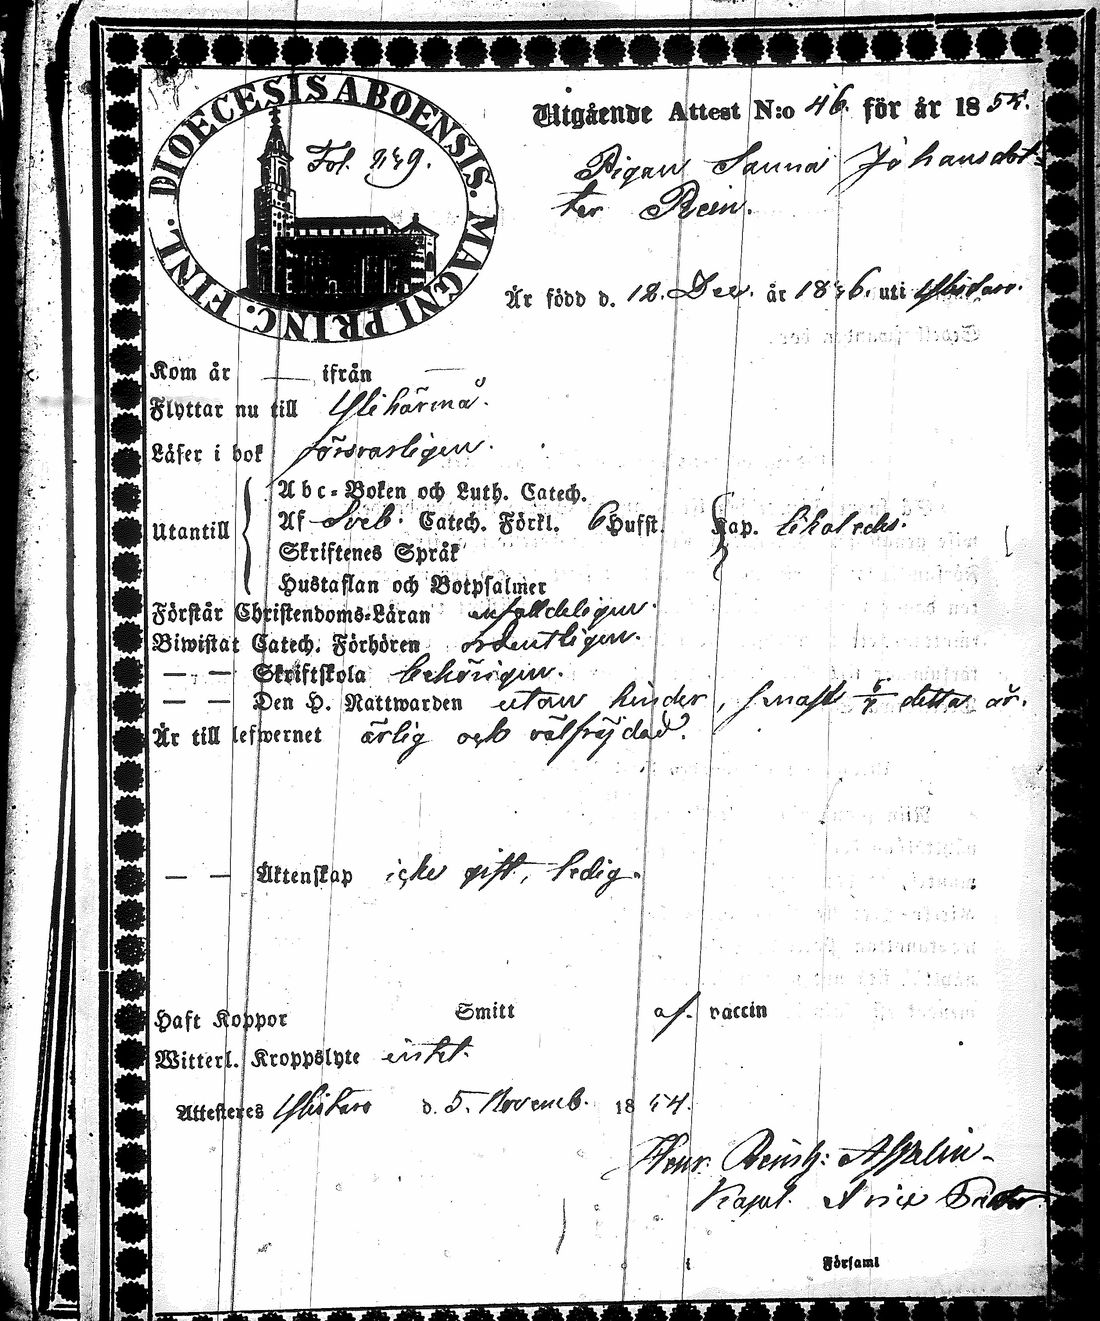 DIOECESIS ABOENSIS. MAGNI PRINC. FINL.
Fol. 249.
Utgående Attest N:o 46. för år 1854.
Pigan Sanna Johansdot-
ter Rein.
Är född d. 12. Dec. år 1836. uti Ylistaro.
Kom år — ifrån —
Flyttar nu till Ylihärmä.
Läser i bok försvarligen.
Utantill
Abc-Boken och Luth. Catech.
Af Sveb. Catech. Förkl. 6 Hufst. Kap.
Skriftenes Språk
Hustaflan och Botpsalmer
Förstår Christendoms-Läran enfalldeligen.
Biwistat Catech. Förhören ordentligen.
— — Skriftskola behörigen.
— — Den H. Nattwarden utan hinder, senast detta år.
Är till lefwernet ärlig och välfräjdad.
— — Äktenskap icke gift, ledig.
Haft Koppor Smitt af vaccin
Witterl. Kroppslyte intet.
Attesteres Ylistaro d. 5. Novemb. 1854.
Henr. Reinh:
Kapal.
i Församl